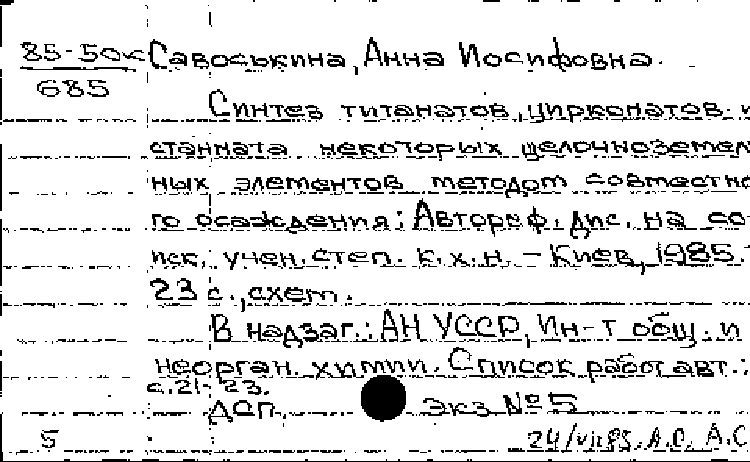 85-50к Савоськина, Анна Иосифовна.
685
Синтез титанатов, цирконатов и
станната некоторых щелочноземел
ных элементов методом совместно
го осаждения: Автореф. дис. на со
иск. учен. степ. к. х. н. - Киев, 1985. -
23 с., схем.
В надзаг.: АН УССР, Ин-т общ. и
неорган. химии. Список работ авт.:
с. 21-23.
ДСП. Экз. № 5
5 24/VII 85. А.С. А.С